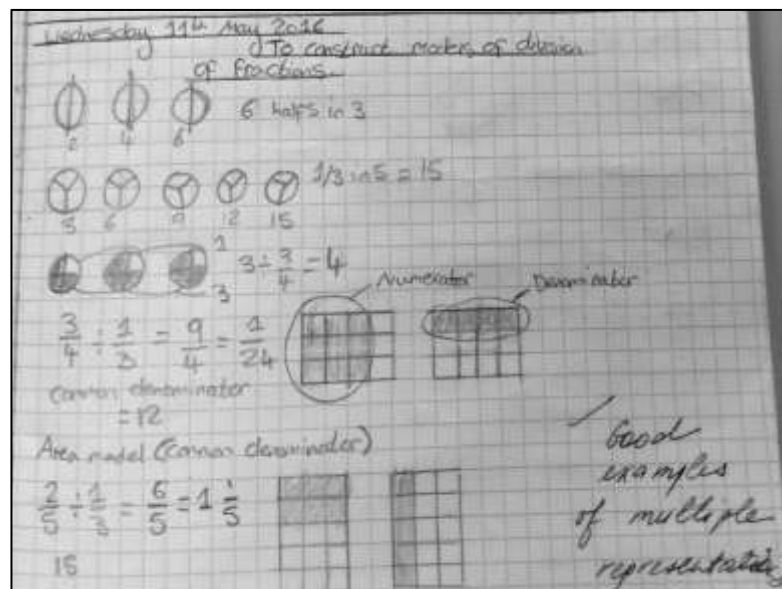 Wednesday 11th May 2016
To construct models of division
of fractions.
2 4 6 6 halfs in 3
1/3 in 5 = 15
3 6 9 12 15
1
3 ÷ 3/4 = 4
3
Numerator Denominator
3/4 ÷ 1/3 = 9/4 = 1/24
common denominator
= 12
Area model (common denominator)
2/5 ÷ 1/3 = 6/5 = 1 1/5
15
Good
examples
of multiple